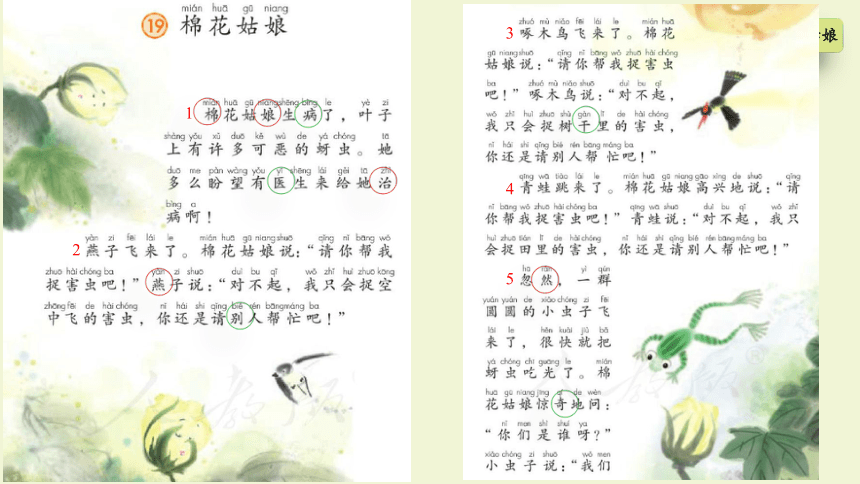 mián huā gū niang
19 棉花姑娘
mián huā gū niang shēng bìng le yè zi
1 棉花姑娘生病了，叶子
shàng yǒu xǔ duō kě wù de yá chóng tā
上有许多可恶的蚜虫。她
duō me pàn wàng yǒu yī shēng lái gěi tā zhì
多么盼望有医生来给她治
bìng a
病啊！
yàn zi fēi lái le mián huā gū niang shuō qǐng nǐ bāng wǒ
2 燕子飞来了。棉花姑娘说：“请你帮我
zhuō hài chóng ba yàn zi shuō duì bu qǐ wǒ zhǐ huì zhuō kōng
捉害虫吧！”燕子说：“对不起，我只会捉空
zhōng fēi de hài chóng nǐ hái shi qǐng bié rén bāng máng ba
中飞的害虫，你还是请别人帮忙吧！”
zhuó mù niǎo fēi lái le mián huā
3 啄木鸟飞来了。棉花
gū niang shuō qǐng nǐ bāng wǒ zhuō hài chóng
姑娘说：“请你帮我捉害虫
ba zhuó mù niǎo shuō duì bu qǐ
吧！”啄木鸟说：“对不起，
wǒ zhǐ huì zhuō shù gàn lǐ de hài chóng
我只会捉树干里的害虫，
nǐ hái shi qǐng bié rén bāng máng ba
你还是请别人帮忙吧！”
qīng wā tiào lái le mián huā gū niang gāo xìng de shuō qǐng
4 青蛙跳来了。棉花姑娘高兴地说：“请
nǐ bāng wǒ zhuō hài chóng ba qīng wā shuō duì bu qǐ wǒ zhǐ
你帮我捉害虫吧！”青蛙说：“对不起，我只
huì zhuō tián lǐ de hài chóng nǐ hái shi qǐng bié rén bāng máng ba
会捉田里的害虫，你还是请别人帮忙吧！”
hū rán yì qún
5 忽然，一群
yuán yuán de xiǎo chóng zi fēi
圆圆的小虫子飞
lái le hěn kuài jiù bǎ
来了，很快就把
yá chóng chī guāng le mián
蚜虫吃光了。棉
huā gū niang jīng qí de wèn
花姑娘惊奇地问：
nǐ men shì shuí ya
“你们是谁呀？”
xiǎo chóng zi shuō wǒ men
小虫子说：“我们
娘